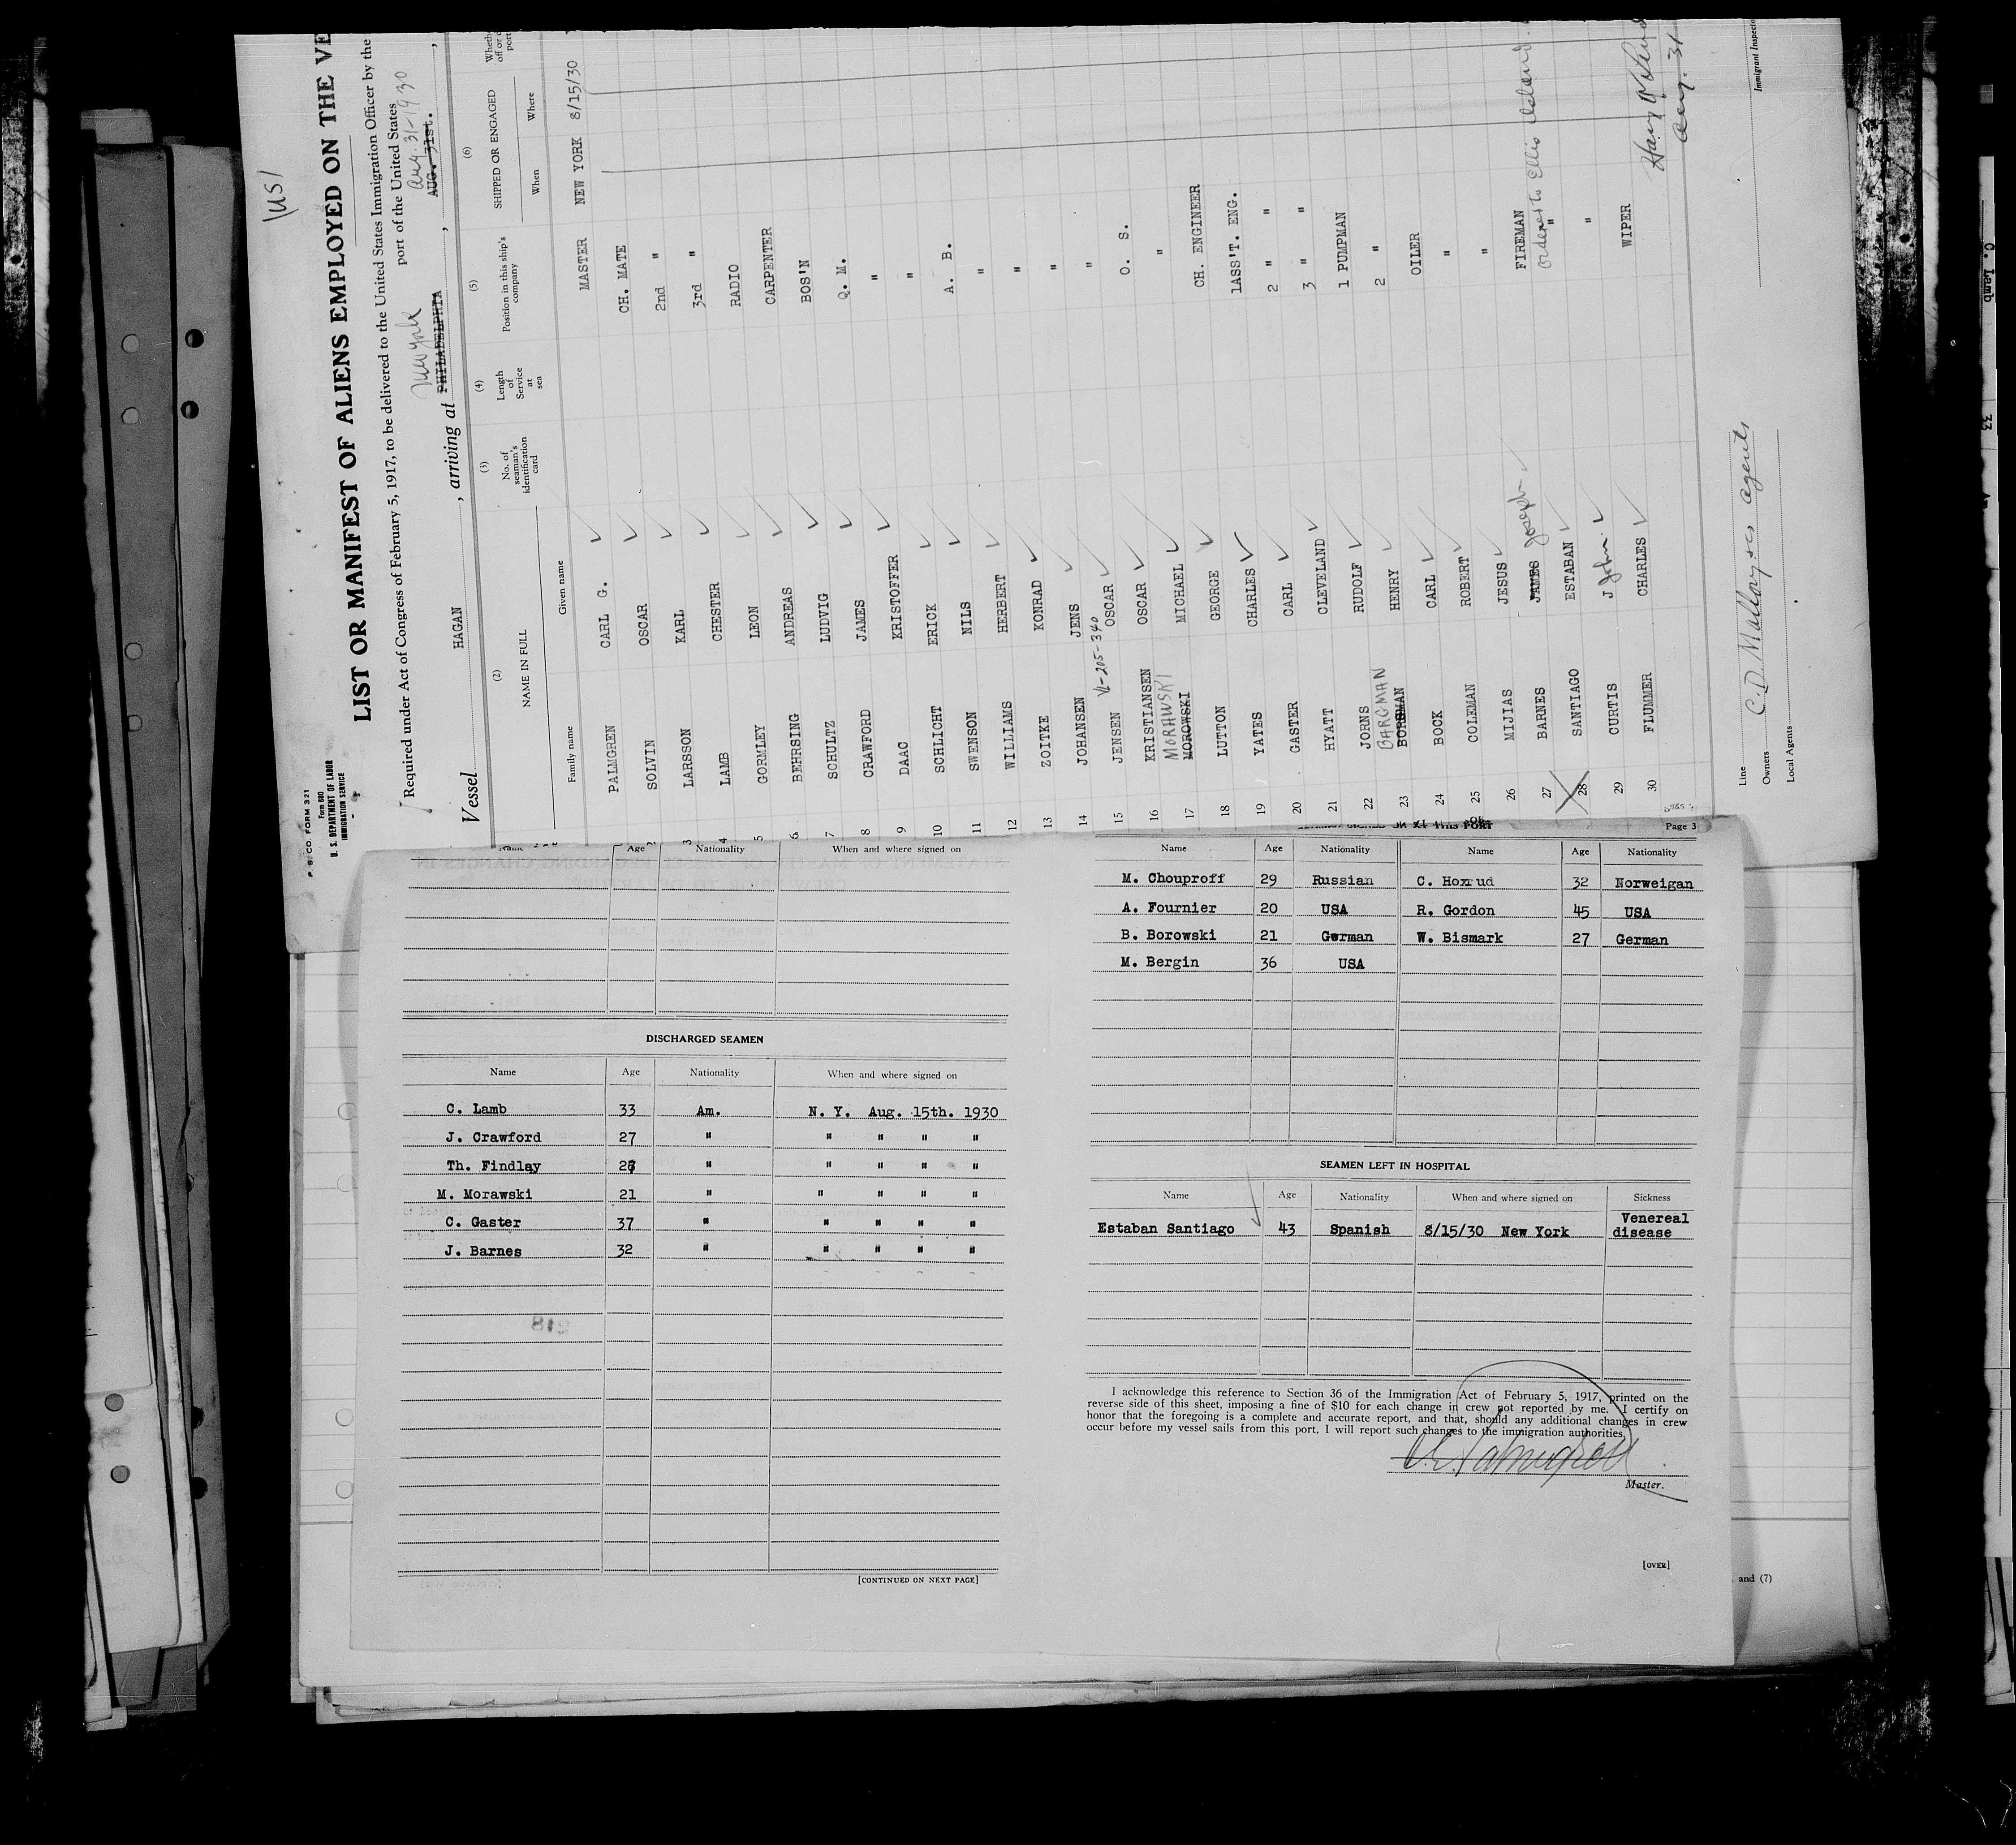 P. S. CO. FORM 321
Form 680
U. S. DEPARTMENT OF LABOR
IMMIGRATION SERVICE
LIST OR MANIFEST OF ALIENS EMPLOYED ON THE VE
Required under Act of Congress of February 5, 1917, to be delivered to the United States Immigration Officer by the
port of the United States
Vessel HAGAN, arriving at PHILADELPHIA New York, AUG. 31st. Aug. 31-1930,
(2) (3) (4) (5) (6)
NAME IN FULL
Family name Given name
No. of seaman's identification card
Length of Service at sea
Position in this ship's company
SHIPPED OR ENGAGED
When Where
PALMGREN CARL G. MASTER NEW YORK 8/15/30
SOLVIN OSCAR CH. MATE
3 LARSSON KARL 2nd "
4 LAMB CHESTER 3rd "
5 GORMLEY LEON RADIO
6 BEHRSING ANDREAS CARPENTER
7 SCHULTZ LUDVIG BOS'N
8 CRAWFORD JAMES Q. M.
9 DAAC KRISTOFFER "
10 SCHLICHT ERICK "
11 SWENSON NILS A. B.
12 WILLIAMS HERBERT "
13 ZOITKE KONRAD "
14 JOHANSEN JENS "
15 JENSEN OSCAR "
16 KRISTIANSEN OSCAR O. S.
17 MOROWSKI MORAWSKI MICHAEL "
18 LUTTON GEORGE CH. ENGINEER
19 YATES CHARLES 1ASS'T. ENG.
20 GASTER CARL 2 " "
21 HYATT CLEVELAND 3 " "
22 JORNS RUDOLF 1 PUMPMAN
23 BARGMAN HENRY 2 "
24 BOCK CARL OILER
25 COLEMAN ROBERT "
26 MIJIAS JESUS "
27 BARNES JAMES Joseph FIREMAN
28 SANTIAGO ESTABAN " Ordered to Ellis Island
29 CURTIS J John "
30 FLUMMER CHARLES WIPER
Aug. 31
Immigrant Inspec
Line
Owners C. D. Mallory &co agents
Local Agents
Age Nationality When and where signed on
DISCHARGED SEAMEN
Name Age Nationality When and where signed on
C. Lamb 33 Am. N. Y. Aug. 15th. 1930
J. Crawford 27 " " " " "
Th. Findlay " " " " "
M. Morawski 21 " " " " "
C. Gaster 37 " " " " "
J. Barnes 32 " " " " "
218
[CONTINUED ON NEXT PAGE]
Page 3
Name Age Nationality Name Age Nationality
M. Chouproff 29 Russian C. Homrud 32 Norweigan
A. Fournier 20 USA R. Gordon 45 USA
B. Borowski 21 German W. Bismark 27 German
M. Bergin 36 USA
SEAMEN LEFT IN HOSPITAL
Name Age Nationality When and where signed on Sickness
Estaban Santiago 43 Spanish 8/15/30 New York Venereal disease
I acknowledge this reference to Section 36 of the Immigration Act of February 5, 1917, printed on the
reverse side of this sheet, imposing a fine of $10 for each change in crew not reported by me. I certify on
honor that the foregoing is a complete and accurate report, and that, should any additional changes in crew
occur before my vessel sails from this port, I will report such changes to the immigration authorities.
Master.
[OVER]
and (7)
C. Lamb 33